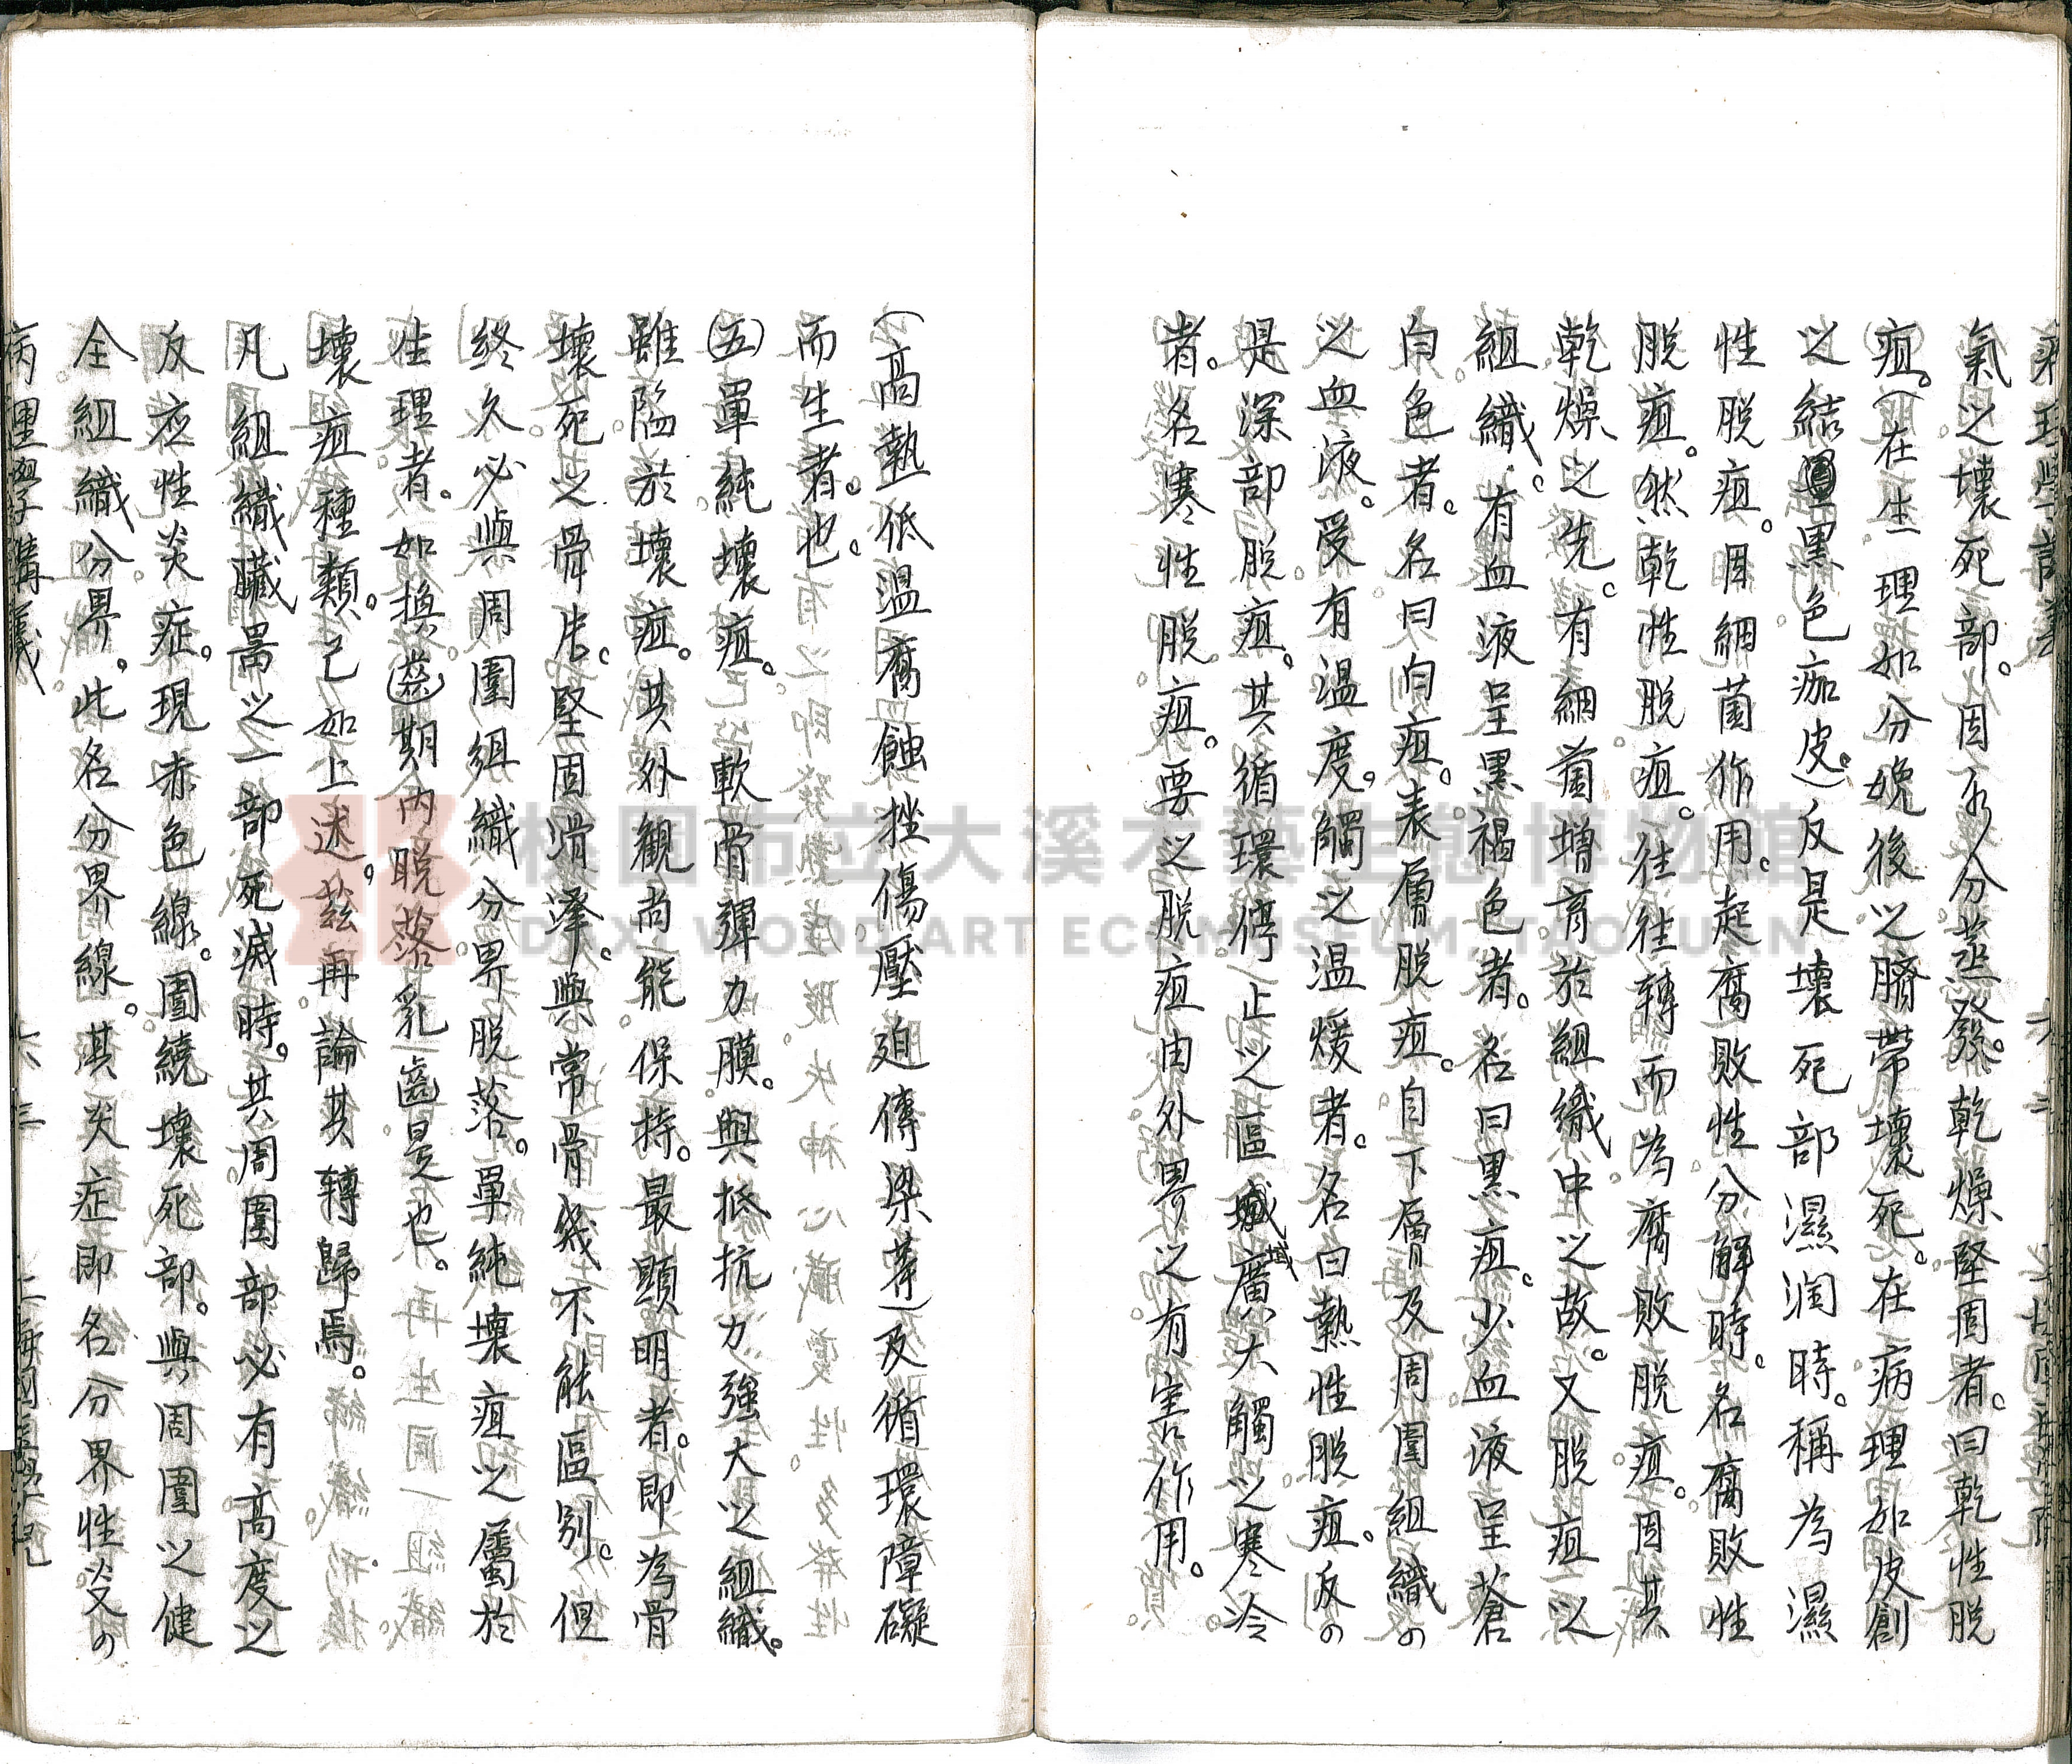 氣之壞死部。因水分蒸發。乾燥堅周者。曰乾性脫
疽。(在生理如分娩後之臍帶壞死。在病理如皮創
之結黑色痂皮。)反是壞死部濕润時。稱為濕
性脫疽。因細菌作用。起腐敗性分解時。名腐敗性
脫疽。然乾性脫疽。往往轉而為腐敗脫疽。因其
乾燥之先。有細菌增育於組織中之故。又脫疽之
組織。有血液呈黑褐色者。名曰黑疽。少血液呈蒼
白色者。名曰白疽。表層脫疽。自下層及周圍組織の
之血液。受有溫度。觸之温煖者。名曰熱性脫疽。反の
是深部脫疽。其循環停止之區域廣大觸之寒冷
者。名寒性脫疽。要之脫疽由外界之有害作用。
(高熱低温腐蝕挫傷壓迫傳染等)及循環障礙
而生者。也。
(五)單純壞疽。軟骨彈力膜。與抵抗力強大之組織。
雖陷於壞疽。其外觀尚能保持。最顕明者。即為骨
壞死之骨片。堅固滑澤。與常骨幾不能區别。但
終久必與周圍組織分界脫落。單純壞疽之屬於
生理者。如換齒期內脫落乳齒是也。
壞疽種類。已如上述。茲再論其轉歸焉。
凡組織臟器之一部死滅時。其周圍部必有高度之
反應性炎症。現赤色線。圍繞壞死部。與周圍之健
全組織分界。此名分界線。其炎症即名分界性炎の
病理學講義 六三 上海國醫學院
桃園市立大溪木藝生態博物館
DAXI WOOD ART ECOMUSEUM, TAOYUAN